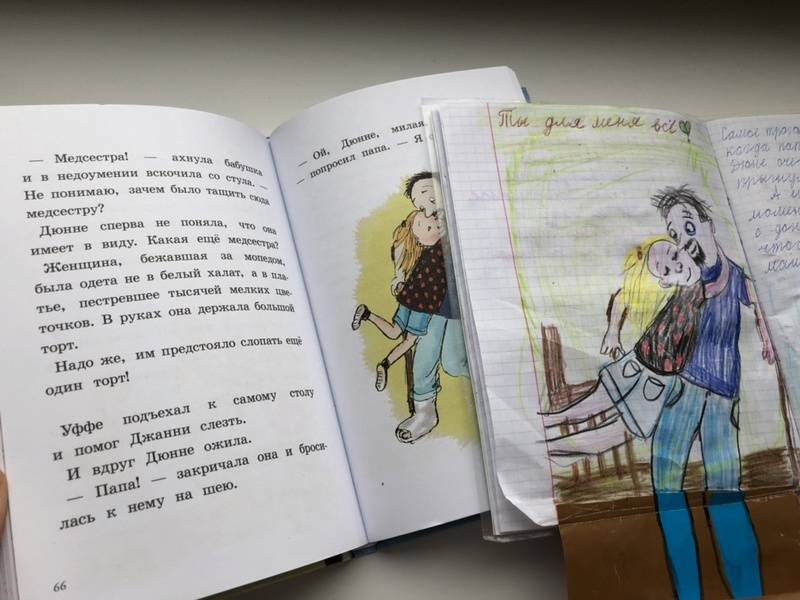 — Медсестра! — ахнула бабушка
и в недоумении вскочила со стула. —
Не понимаю, зачем было тащить сюда
медсестру?
Дюнне сперва не поняла, что она
имеет в виду. Какая ещё медсестра?
Женщина, бежавшая за мопедом,
была одета не в белый халат, а в пла-
тье, пестревшее тысячей мелких цве-
точков. В руках она держала большой
торт.
Надо же, им предстояло слопать ещё
один торт!
Уффе подъехал к самому столу
и помог Джанни слезть.
И вдруг Дюнне ожила.
— Папа! — закричала она и броси-
лась к нему на шею.
66
— Ой, Дюнне, милая
— попросил папа. — Я
Ты для меня всё
Самое
когда
А